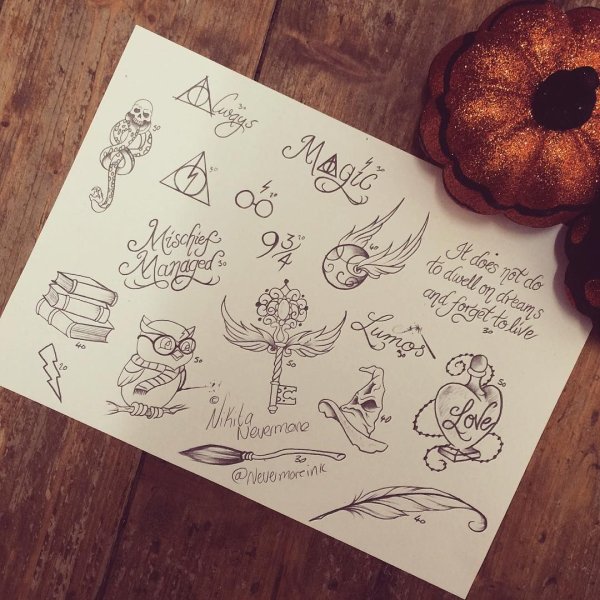 Always
30
50
Magic
30
30
20
Mischief
Managed
30
9 3/4
20
40
It does not do
to dwell on dreams
and forget to live
30
Lumos
30
40
50
50
20
50
Love
40
© Nikita
Nevermore
30
@Nevermoreink
40